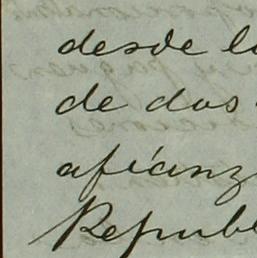 desde l
de dos
afianz
Repub